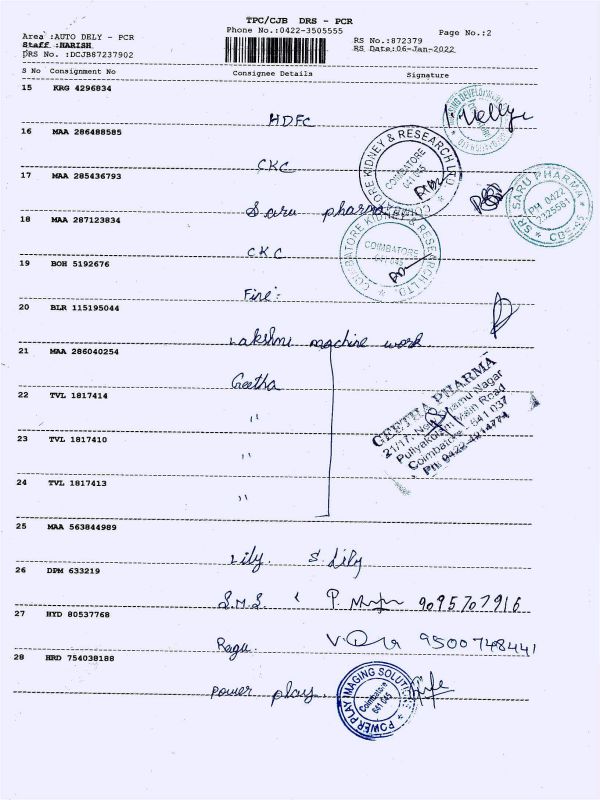 TPC/CJB DRS - PCR
Area :AUTO DELY - PCR
Phone No.:0422-3505555
Page No.:2
Staff :HARISH
RS No.:872379
DRS No. :DCJB87237902
RS Date:06-Jan-2022
S No Consignment No Consignee Details Signature
15 KRG 4296834
HDFC
16 MAA 286488585
CKC
COIMBATORE KIDNEY & RESEARCH LTD
COIMBATORE
641 045
17 MAA 285436793
Saru pharma
SRI SARU PHARMA
PH 0422
CBE-45
18 MAA 287123834
CKC
COIMBATORE KIDNEY & RESEARCH LTD
COIMBATORE
641 045
19 BOH 5192676
Fine
20 BLR 115195044
Lakshmi machine work
21 MAA 286040254
Geetha
GEETHA PHARMA
Puliyakulam Main Road
Coimbatore - 641 037
22 TVL 1817414
"
23 TVL 1817410
"
24 TVL 1817413
"
25 MAA 563844989
Lily. S. Lily
26 DPM 633219
S.M.S. 9095707916
27 HYD 80537768
Ragu. 9500748441
28 HRD 754038188
power play.
POWER PLAY IMAGING SOLUTIONS
Coimbatore
641 045